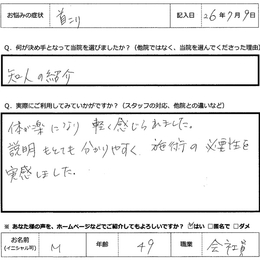 お悩みの症状 首こり 記入日 26年7月9日
Q. 何が決め手となって当院を選びましたか？（他院ではなく、当院を選んでくださった理由）
知人の紹介
Q. 実際にご利用してみていかがですか？（スタッフの対応、他院との違いなど）
体が楽になり 軽く感じられました。
説明もとても 分かりやすく 施術の 必要性を
実感しました。
※ あなた様の声を、ホームページなどでご紹介してもよろしいですか？ ☑はい □匿名で □ダメ
お名前（イニシャル可） M 年齢 49 職業 会社員